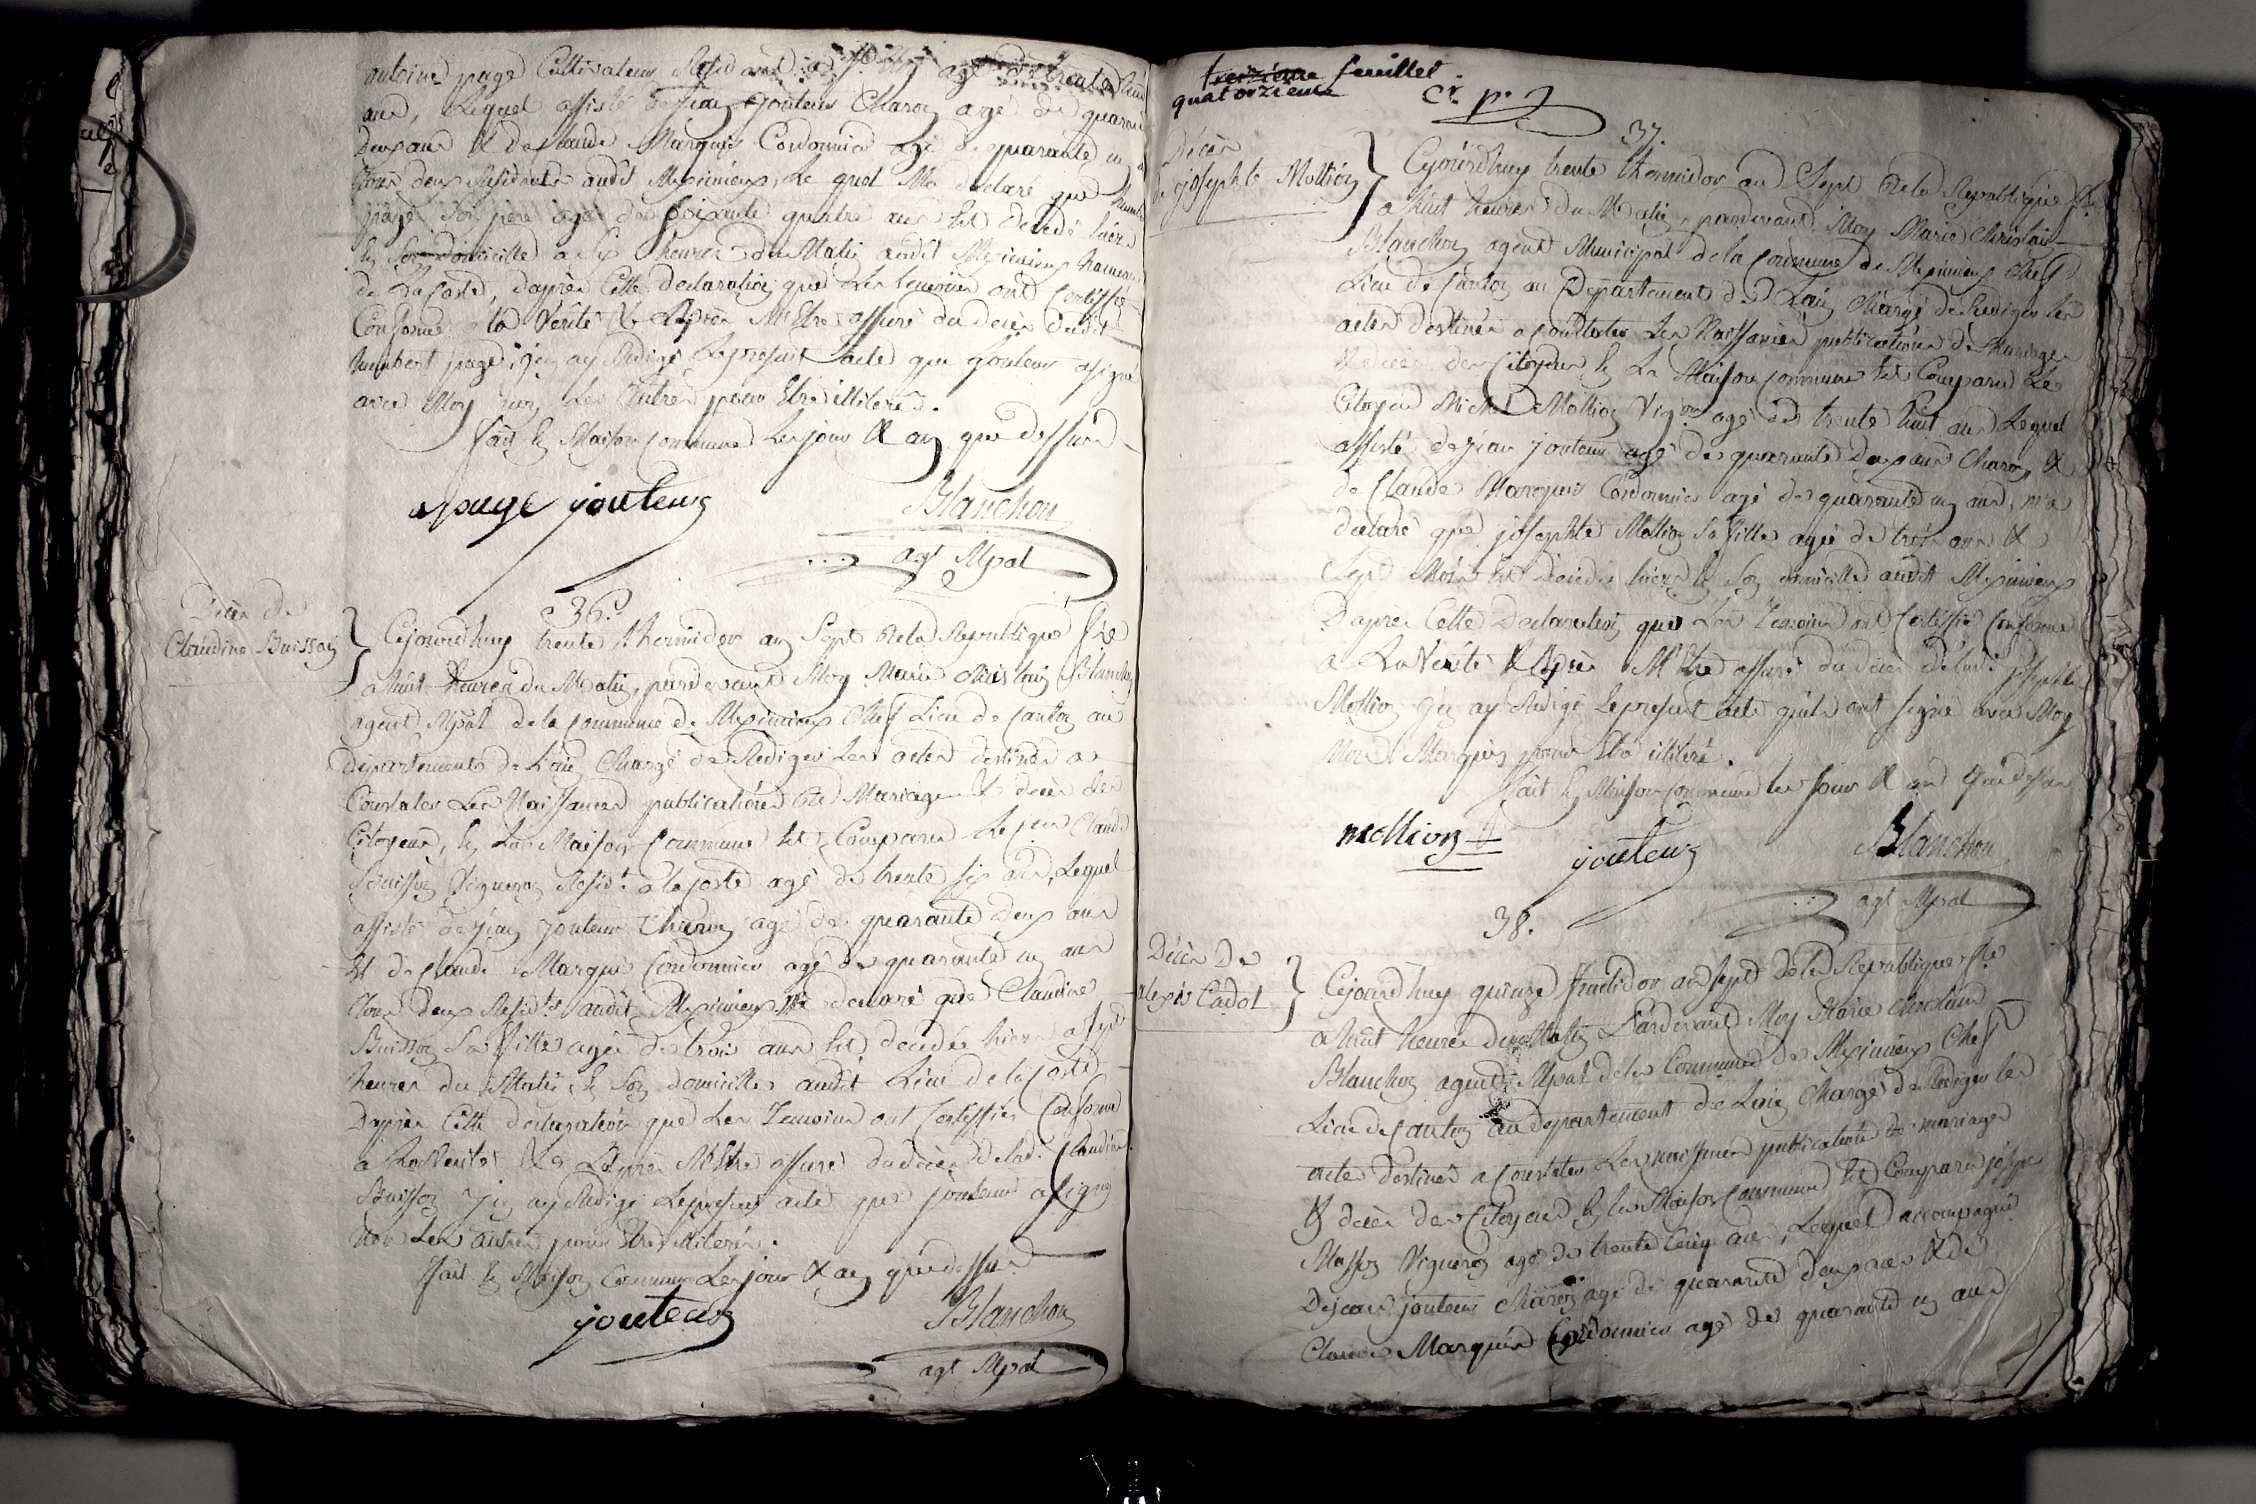 antoine page Cultivateur Résidant age de trente
ans, Lequel assisté de jean jouteur Charon agé de quarante
Deux ans & de Claude Marquis Cordonnier agé de quarante un
tous deux Résidants audit Meximieux, Le quel Ma déclaré que humbert
page son père agé de soixante quatre ans Est décédé hier
En son domicille a six heures du Matin audit Meximieux hameau
de La Coste, d'après Cette declaration que Les temoins ont Certiffié
Conforme a la Vérité & Après M'Etre assuré du décès dudit
humbert page j'en ay Rédigé Le présent acte que jouteur a signé
avec Moy non Les Autres pour Etre illiteré.
fait En Maison Commune Les jour & an que dessus
apage jouteur Blanchon
agt Mpal
Décès de
Claudine Buisson
36.
Cejourdhuy trente thermidor an Sept de la Republique fse
a huit heures du Matin, pardevant Moy Marie Christin Blanchon
agent Mpal de la Commune de Meximieux Chef Lieu de Canton au
Departement de L'ain, Chargé de Rediger Les actes destinés a
Constater Les Naissances publications de Mariage & décès des
Citoyens, En La Maison Commune Est Comparu Le Claude
Buisson Vigneron Résidt a la Coste agé de trente six ans, Lequel
assisté de jean jouteur Charon agé de quarante deux ans
Et de Claude Marquis Cordonnier agé de quarante un ans
tous deux Residts audit Meximieux Ma declaré que Claudine
Buisson Sa fille agée de trois ans Est decedée hier a sept
heures du Matin En Son domicille audit Lieu de la Coste
D'après Cette declaration que Les Temoins ont Certiffiés Conforme
a La Verité & Après M'Etre assuré du décès de lad. Claudine
Buisson j'en ay Redigé Le présent acte que jouteur a signé
Non Les autres pour Etre illiterés.
fait En Maison Commune Les jour & an que dessus
jouteur Blanchon
agt Mpal
treizieme feuillet.
quatorzieme
Décès
de josephte Mollion
37.
Cejourd'huy trente thermidor an Sept de la Republique fse
a huit heures du Matin, pardevant Moy Marie Christin
Blanchon agent Municipal de la Commune de Meximieux Chef
Lieu de Canton au Departement de L'ain, Chargé de Rediger Les
actes destinés a Constater Les Naissances publications de Mariage
& décès des Citoyens En La Maison Commune Est Comparu Le
Citoyen Michel Mollion Vigon agé de trente huit ans Lequel
assisté de jean jouteur agé de quarante Deux ans Charon &
de Claude Marquis Cordonnier agé de quarante un ans, m'a
declaré que josephte Mollion Sa fille agée de trois ans &
Sept Mois Est décédée hier En Son domicille audit Meximieux
D'après Cette Declaration que Les Temoins ont Certiffié Conforme
a La Verité & Après M'Etre assuré du décès de lad. josephte
Mollion j'en ay Redigé Le présent acte qu'ils ont signé avec Moy
Non Marquis pour Etre illiteré.
fait En Maison Commune les jour & an que dessus
mollion jouteur Blanchon
agt Mpal
Décès De
alexis Cadot
38.
Cejourd'huy quinze fructidor an sept de la Republique fse
a huit heures du Matin Pardevant Moy Marie Christin
Blanchon agent Mpal de la Commune de Meximieux Chef
Lieu de Canton au departement de L'ain Chargé de Rediger les
acte destinés a Constater Les naissances publications de mariage
& décès des Citoyens En La Maison Commune Est Comparu joseph
Masson Vigneron agé de trente Cinq ans, Lequel accompagné
De jean jouteur Charon agé de quarante deux ans & de
Claude Marquis Cordonnier agé de quarante un ans